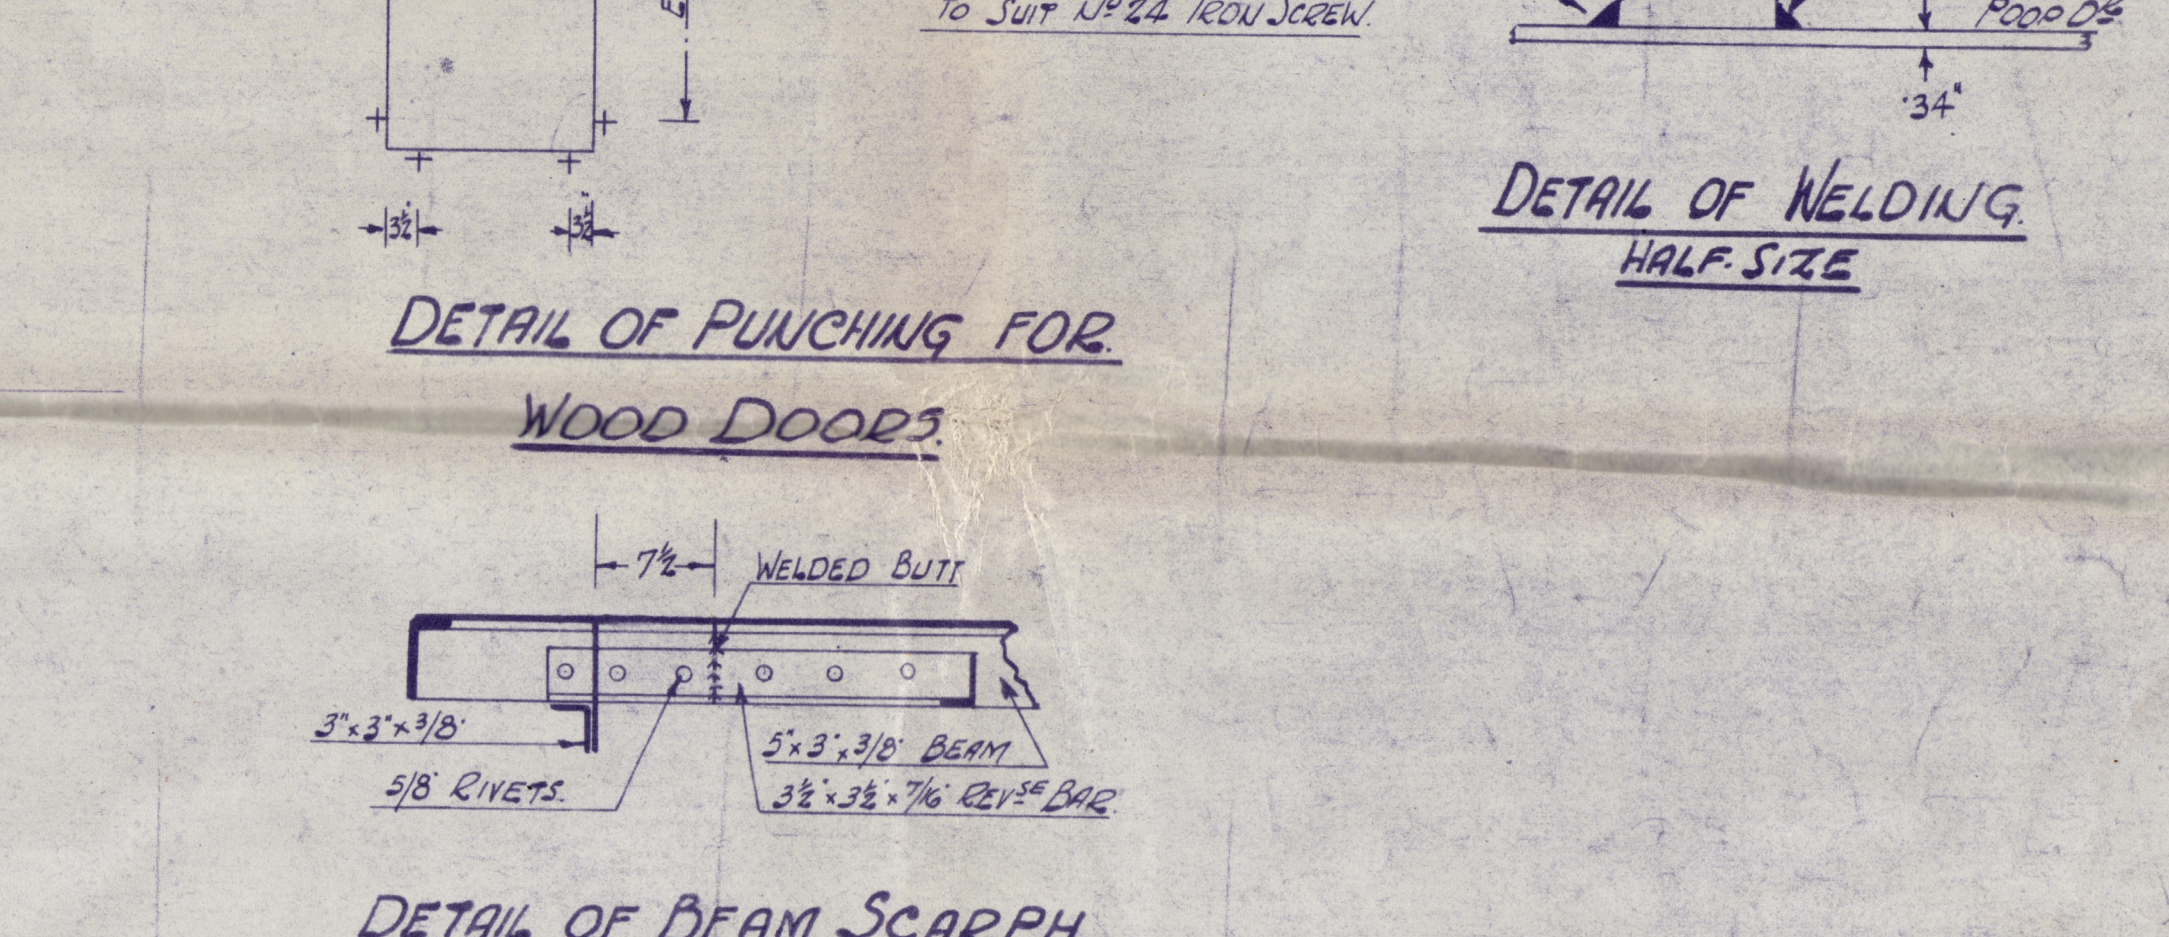 TO SUIT Nº 24 IRON SCREW.
POOP DK
·34"
3½"
3½"
DETAIL OF WELDING.
HALF. SIZE
DETAIL OF PUNCHING FOR.
WOOD DOORS.
7½
WELDED BUTT
3"x3"x3/8"
5"x3"x3/8" BEAM
5/8" RIVETS.
3½"x3½"x7/16" REVSE BAR.
DETAIL OF BEAM SCARPH